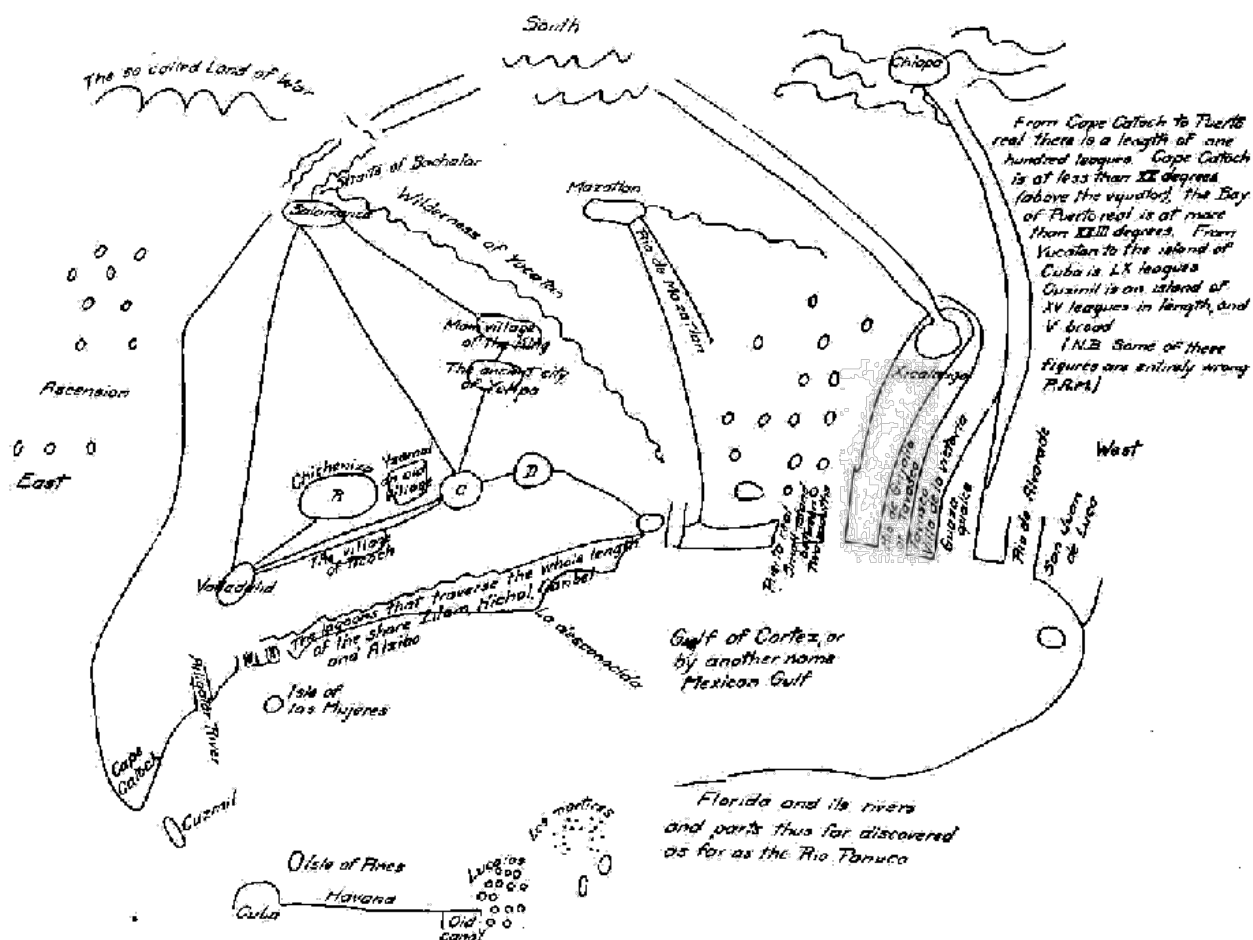 South
The so called Land of War
Chiapa
From Cape Catoch to Puerto
real there is a length of one
hundred leagues. Cape Catoch
is at less than XX degrees
(above the equator), the Bay
of Puerto real is at more
than XXIII degrees. From
Yucatan to the island of
Cuba is LX leagues
Cuzmil is an island of
XV leagues in length, and
V broad
(N.B. Some of these
figures are entirely wrong
P.A.M.)
Straits of Bachalar
Salamanca
Wilderness of Yucatan
Mazatlan
Rio de Mazatlan
Main village
of the King
The ancient city
of
Xicalango
Ascension
East
West
Chicheniza
B
Yzamal
an old
village
C
D
The village
of
Valladolid
Puerto real
Small island
between
Two
Rio de Grijalva
or Tavasco
Tavasco
Villa de la victoria
Guaza
qualco
Rio de Alvarado
San Juan
de Luca
The lagoons that traverse the whole length
of the shore Zilam,
and
La desconocida
Gulf of Cortez, or
by another name
Mexican Gulf
Isle of
las Mujeres
Alligator River
Cape
Catoch
Cuzmil
Florida and its rivers
and parts thus far discovered
as far as the Rio Panuco
Los martires
Lucaios
Isle of Pines
Havana
Cuba
Old
canal